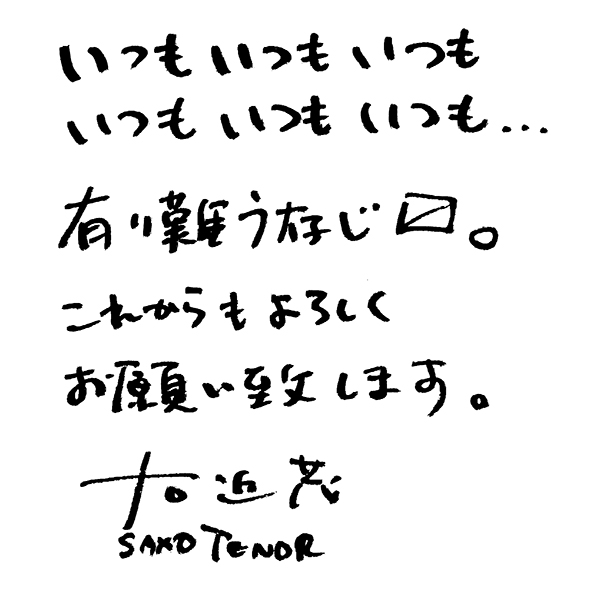 いつもいつもいつも
いつもいつもいつも...
有り難う存じ〼。
これからもよろしく
お願い致します。
右近茂
SAXO TENOR